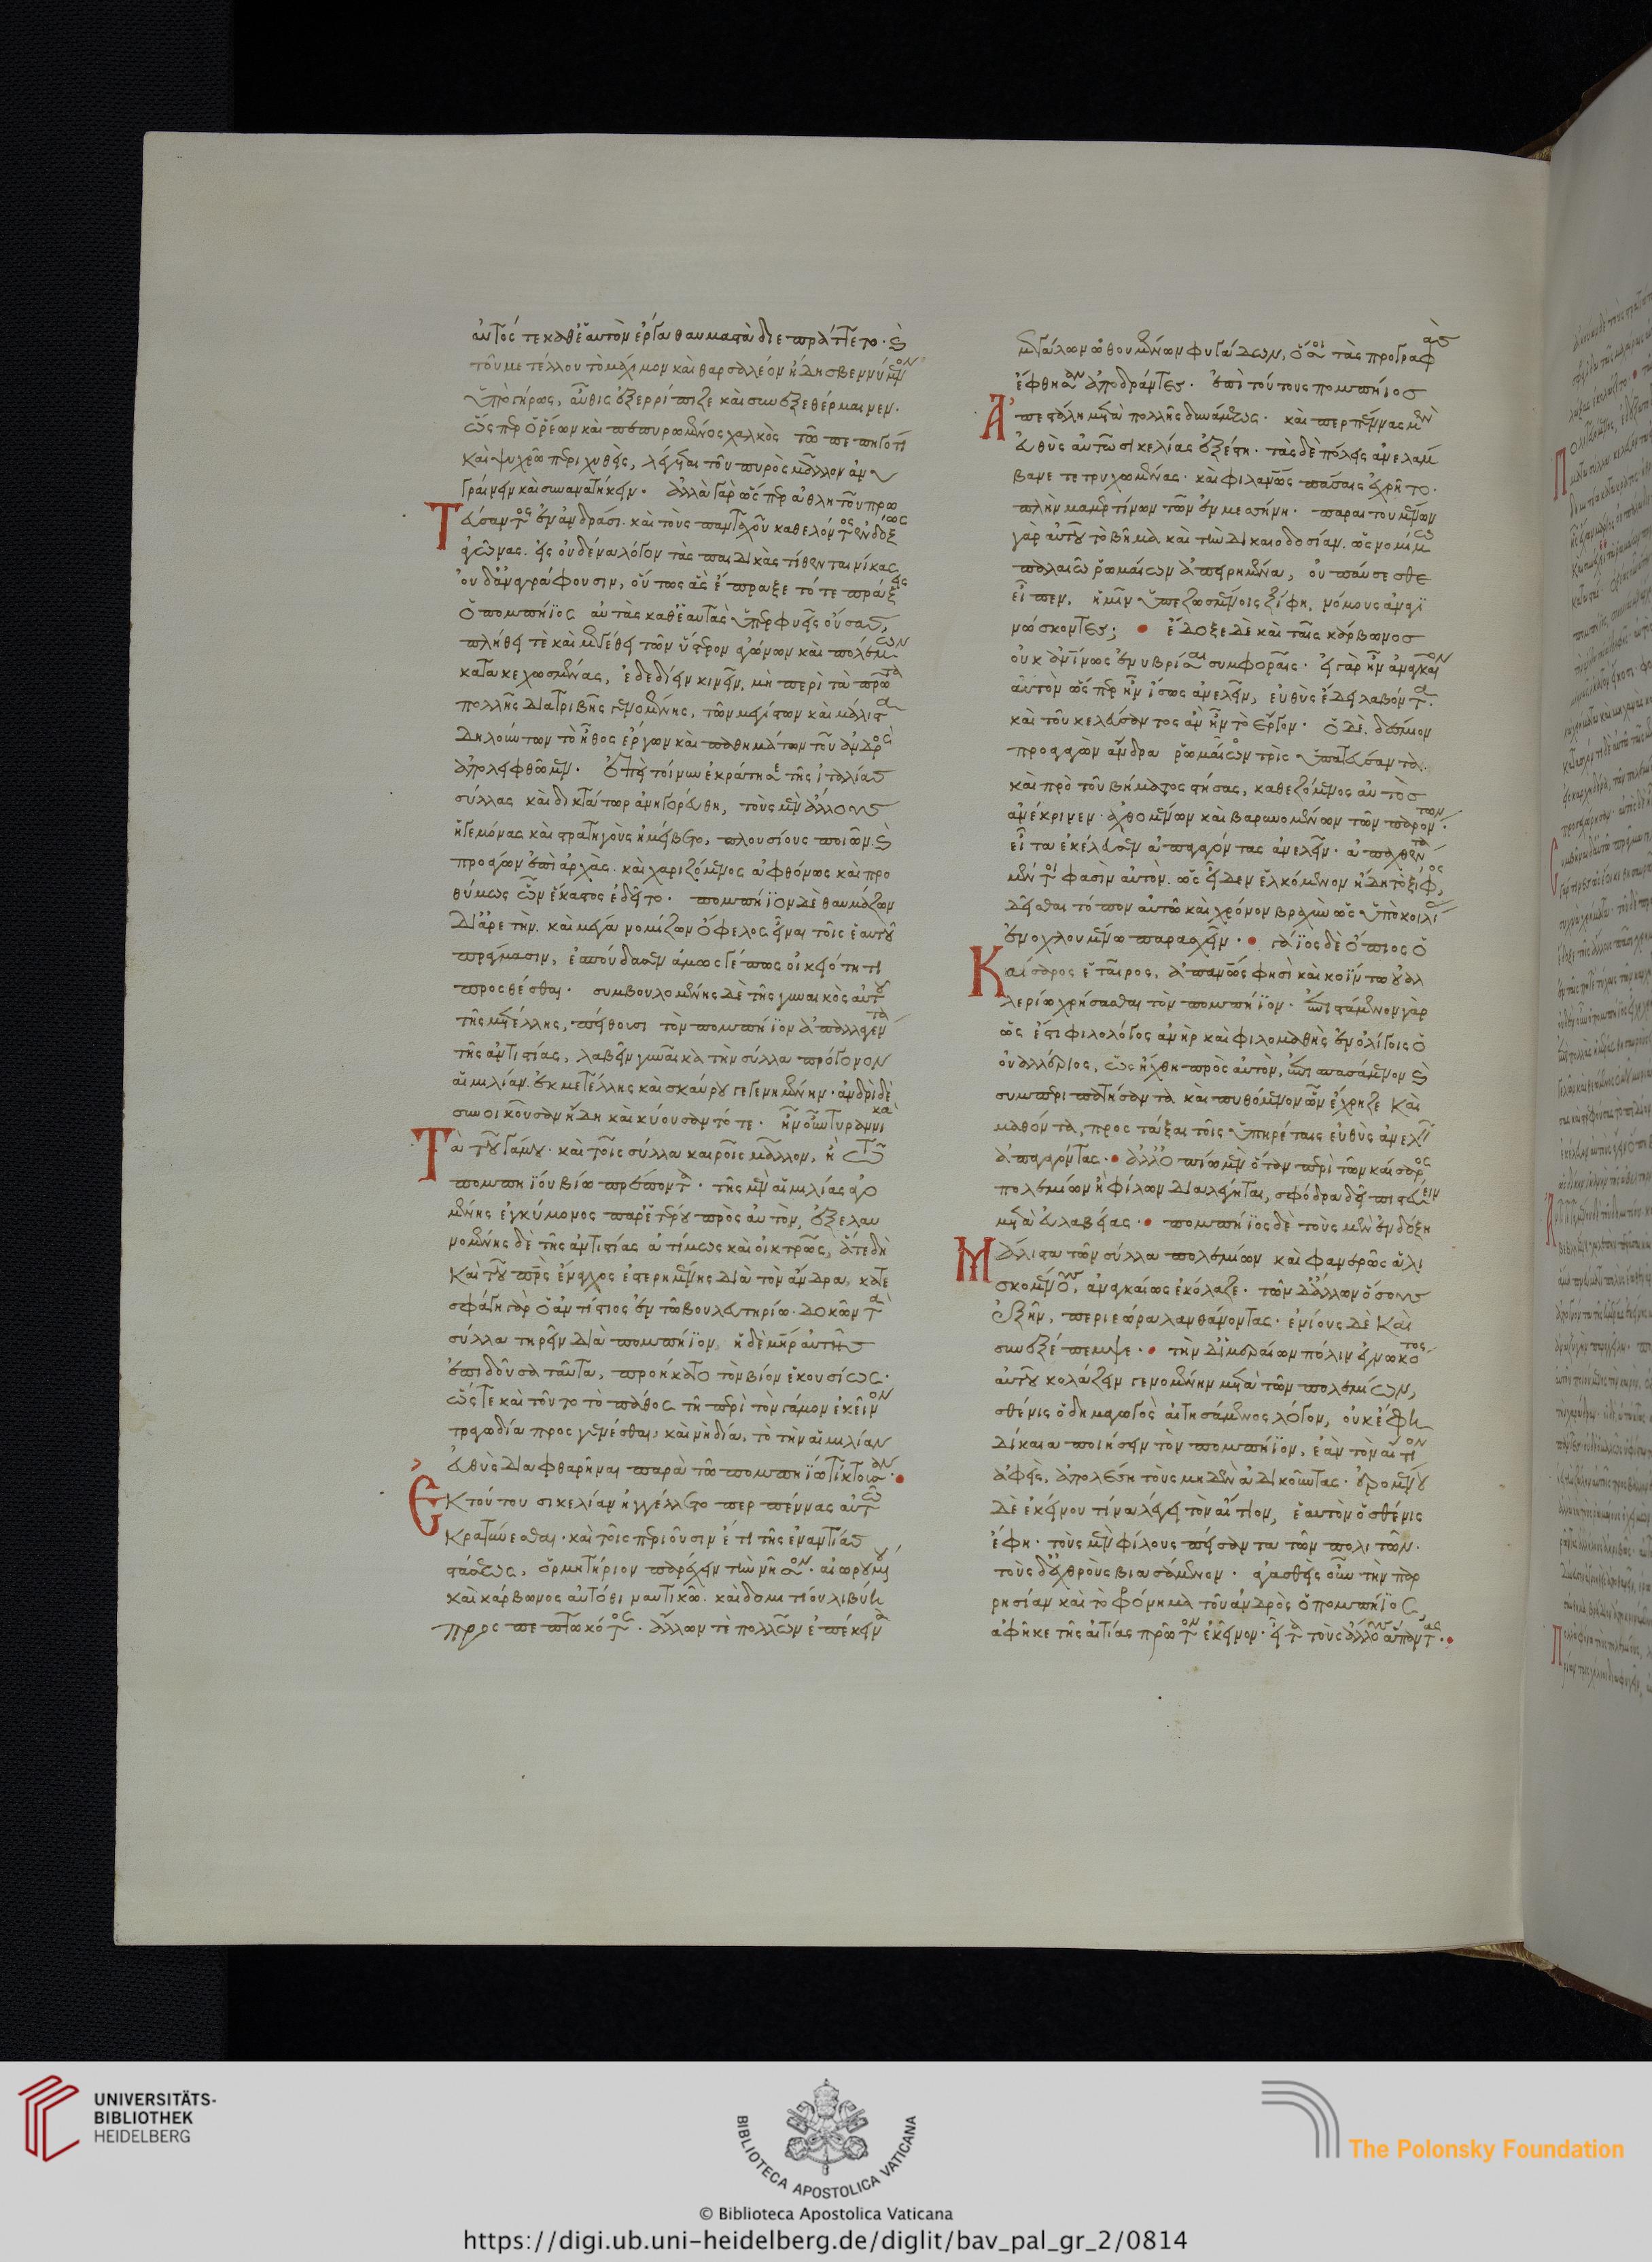 αὐτός τε καθ' ἑαυτὸν ἔργα θαυμαστὰ διεπράττετο· καὶ
τοῦ μετέλλου τὸ μάχιμον καὶ θαρσαλέον ἤδη σβεννύμενον
ὑπὸ γήρως, αὖθις ἐξερρίπιζε καὶ συνεξεθέρμαινεν.
ὥσπερ ὁ ῥέων καὶ πεπυρωμένος χαλκὸς τῶ πεπηγότι
καὶ ψυχρῶ περιχυθεὶς, λέγεται τοῦ πυρὸς μᾶλλον ἀνυ
γραίνειν καὶ συνανατήκειν. ἀλλὰ γὰρ ὥσπερ ἀθλητοῦ πρω
τεύσαντος ἐν ἀνδράσι. καὶ τοὺς πανταχοῦ καθελόντος ἐνδόξως
ἀγῶνας. εἰς οὐδένα λόγον τὰς παιδικὰς τίθενται νίκας
οὐδ' ἀναγράφουσιν, οὕτως ἃς ἔπραξε τότε πράξεις
ὁ πομπήϊος αὐτὰς καθ' ἑαυτὰς ὑπερφυεῖς οὔσας,
πλήθει τὲ καὶ μεγέθει τῶν ὕστερον ἀγώνων καὶ πολέμων
κατακεχωσμένας, ἐδεδίειν κινεῖν, μὴ περὶ τὰ πρῶτα
πολλῆς διατριβῆς γενομένης, τῶν μεγίστων καὶ μάλιστα
δηλούντων τὸ ἦθος ἔργων καὶ παθημάτων τοῦ ἀνδρὸς
ἀπολειφθῶμεν. ἐπεὶ τοίνυν ἐκράτησε τῆς ἰταλίας
σύλλας καὶ δικτάτωρ ἀνηγορεύθη, τοὺς μὲν ἄλλους
ἡγεμόνας καὶ στρατηγοὺς ἠμείβετο, πλουσίους ποιῶν. καὶ
προάγων ἐπὶ ἀρχὰς. καὶ χαριζόμενος ἀφθόνως καὶ προ
θύμως ὧν ἕκαστος ἐδεῖτο. πομπήϊον δὲ θαυμάζων
δι' ἀρετὴν. καὶ μέγα νομίζων ὄφελος εἶναι τοῖς ἑαυτοῦ
πράγμασιν, ἐσπούδασεν ἁμῶς γέ πως οἰκειότητι
προσθέσθαι. συμβουλομένης δὲ τῆς γυναικὸς αὐτοῦ
τῆς μετέλλης, πείθουσι τὸν πομπήϊον ἀπαλλαγέντα
τῆς ἀντιστίας, λαβεῖν γυναῖκα τὴν σύλλα πρόγονον
αἰμιλίαν. ἐκ μετέλλης καὶ σκαύρου γεγενημένην· ἀνδρὶ δὲ
συνοικοῦσαν ἤδη καὶ κύουσαν τότε. ἦν οὖν τυραννικὰ
τὰ τοῦ γάμου· καὶ τοῖς σύλλα καιροῖς μᾶλλον, ἢ τῶ
πομπηΐου βίω πρέποντα. τῆς μὲν αἰμιλίας ἀγο
μένης ἐγκύμονος παρ' ἑτέρου πρὸς αὐτὸν, ἐξελαυ
νομένης δὲ τῆς ἀντιστίας ἀτίμως καὶ οἰκτρῶς, ἅτε δὴ
καὶ τοῦ πατρὸς ἔναγχος ἐστερημένης διὰ τὸν ἄνδρα, κατε
σφάγη γὰρ ὁ ἀντίστιος ἐν τῶ βουλευτηρίω. δοκῶν τὰ
σύλλα τηρεῖν διὰ πομπήϊον, ἡ δὲ μήτηρ αὐτῆς
ἐπιδοῦσα ταῦτα, προήκατο τὸν βίον ἑκουσίως.
ὥστε καὶ τοῦτο τὸ πάθος τῆ περὶ τὸν γάμον ἐκεῖνον
τραγωδία προσγενέσθαι, καὶ νὴ δία, τὸ τὴν αἰμιλίαν
εὐθὺς διαφθαρῆναι παρὰ τῶ πομπηΐω τίκτουσαν.
ἐκ τούτου σικελίαν ἠγγέλλετο περπέννας αὐτῶ
κρατύνεσθαι. καὶ τοῖς περιοῦσιν ἔτι τῆς ἐναντίας
στάσεως, ὁρμητήριον παρέχειν τὴν νῆσον. αἰωρουμένου
καὶ κάρβωνος αὐτόθι ναυτικῶ. καὶ δομιτίου λιβύη
προσπεπτωκότος. ἄλλων τὲ πολλῶν ἐπέκεινα
μεγάλων ὠθουμένων φυγάδων, ὅσοι τὰς προγραφὰς
ἔφθησαν ἀποδράντες. ἐπὶ τούτους πομπήϊος
ἀπεστάλη μετὰ πολλῆς δυνάμεως. καὶ περπέννας μὲν
εὐθὺς αὐτῶ σικελίας ἐξέστη. τὰς δὲ πόλεις ἀνελάμ
βανε τετρυχωμένας. καὶ φιλανθρώπως πάσαις ἐχρῆτο.
πλὴν μαμερτίνων τῶν ἐν μεσήνη. παραιτουμένων
γὰρ αὐτοῦ τὸ βῆμα καὶ τὴν δικαιοδοσίαν. ὡς νομίμω
παλαιῶ ῥωμαίων ἀπειρημένα, οὐ παύσεσθε
εἶπεν, ἡμῖν ὑπεζωσμένοις ξίφη, νόμους ἀναγι
νώσκοντες; ἔδοξε δὲ καὶ ταῖς κάρβωνος
οὐκ ἀνθρωπίνως ἐνυβρίσαι συμφοραῖς. εἰ γὰρ ἦν ἀναγκαῖον
αὐτὸν ὥσπερ ἦν ἴσως ἀνελεῖν, εὐθὺς ἔδει λαβόντα.
καὶ τοῦ κελεύσαντος ἂν ἦν τὸ ἔργον. ὁ δὲ. δέσμιον
προαγαγὼν ἄνδρα ῥωμαίων τρὶς ὑπατεύσαντα.
καὶ πρὸ τοῦ βήματος στήσας, καθεζόμενος αὐτὸς
ἀνέκρινεν. ἀχθομένων καὶ βαρυνομένων τῶν παρόντων.
εἶτα ἐκέλευσεν ἀπαγαγόντας ἀνελεῖν. ἀπαχθέντα
μέντοι φασὶν αὐτὸν. ὡς εἶδεν ἑλκόμενον ἤδη τὸ ξίφος,
δεῖσθαι τόπον αὐτῶ καὶ χρόνον βραχὺν ὡς ὑπὸ κοιλίας
ἐνοχλουμένω παρασχεῖν. γάϊος δὲ ὄππιος ὁ
καίσαρος ἑταῖρος, ἀπανθρώπως φησὶ καὶ κοΐντω οὐαλ
λερίω χρήσασθαι τὸν πομπήϊον. ἐπιστάμενον γὰρ
ὡς ἔστι φιλολόγος ἀνὴρ καὶ φιλομαθὴς ἐν ὀλίγοις ὁ
οὐαλλέριος, ὡς ἤχθη πρὸς αὐτὸν, ἐπισπασάμενον καὶ
συμπεριπατήσαντα καὶ πυθόμενον ὧν ἔχρηζε καὶ
μαθόντα, προστάξαι τοῖς ὑπηρέταις εὐθὺς ἀνελεῖν
ἀπαγαγόντας. ἀλλ' ὀππίω μὲν ὅταν περὶ τῶν καίσαρος
πολεμίων ἢ φίλων διαλέγηται, σφόδρα δεῖ πιστεύειν
μετὰ εὐλαβείας. πομπήϊος δὲ τοὺς μὲν ἐν δόξη
μάλιστα τῶν σύλλα πολεμίων καὶ φανερῶς ἁλι
σκομένους, ἀναγκαίως ἐκόλαζε. τῶν δ' ἄλλων ὅσους
ἐξῆν, περιεώρα λανθάνοντας. ἐνίους δὲ καὶ
συνεξέπεμψε. τὴν δὲ ἱμεραίων πόλιν ἐγνωκότος
αὐτοῦ κολάζειν γενομένην μετὰ τῶν πολεμίων,
σθένις ὁ δημαγωγὸς αἰτησάμενος λόγον, οὐκ ἔφη
δίκαια ποιήσειν τὸν πομπήϊον, ἐὰν τὸν αἴτιον
ἀφεὶς, ἀπολέση τοὺς μηδὲν ἀδικοῦντας. ἐρομένου
δὲ ἐκείνου τίνα λέγει τὸν αἴτιον, ἑαυτὸν ὁ σθένις
ἔφη. τοὺς μὲν φίλους πείσαντα τῶν πολιτῶν.
τοὺς δ' ἐχθροὺς βιασάμενον. ἀγασθεὶς οὖν τὴν παρ
ρησίαν καὶ τὸ φρόνημα τοῦ ἀνδρὸς ὁ πομπήϊος,
ἀφῆκε τῆς αἰτίας πρῶτον ἐκεῖνον. εἶτα τοὺς ἄλλους ἅπαντας.
UNIVERSITÄTS-
BIBLIOTHEK
HEIDELBERG
BIBLIOTECA APOSTOLICA VATICANA
The Polonsky Foundation
© Biblioteca Apostolica Vaticana
https://digi.ub.uni-heidelberg.de/diglit/bav_pal_gr_2/0814